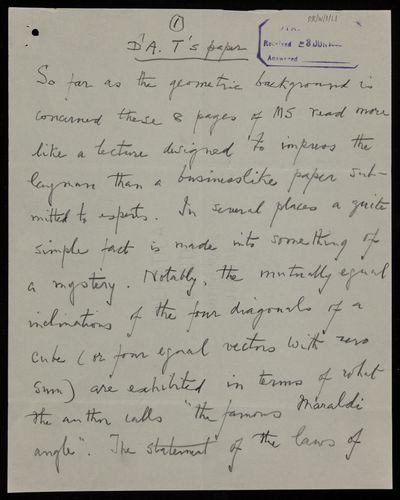 ①
Received 28 JUN
Answered
D'A. T's paper
So far as the geometric background is
concerned these 8 pages of MS read more
like a lecture designed to impress the
layman than a businesslike paper sub-
mitted to experts. In several places a quite
simple fact is made into something of
a mystery. Notably, the mutually equal
inclinations of the four diagonals of a
cube (or four equal vectors with zero
sum) are exhibited in terms of what
the author calls "the famous Maraldi
angle". The statement of the laws of